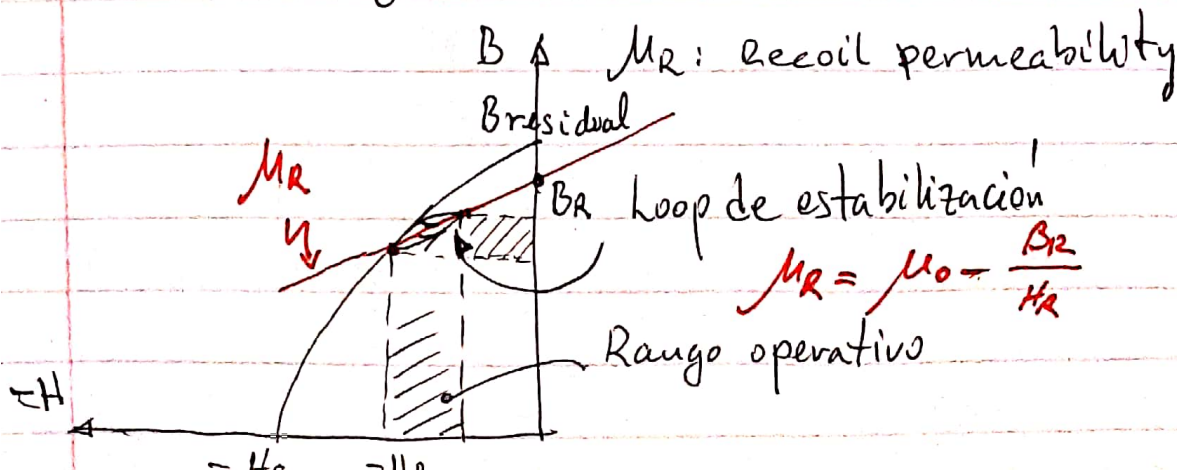 B μR: Recoil permeability
Bresidual
μR
BR Loop de estabilización
μR = μo - BR/HR
Rango operativo
-H